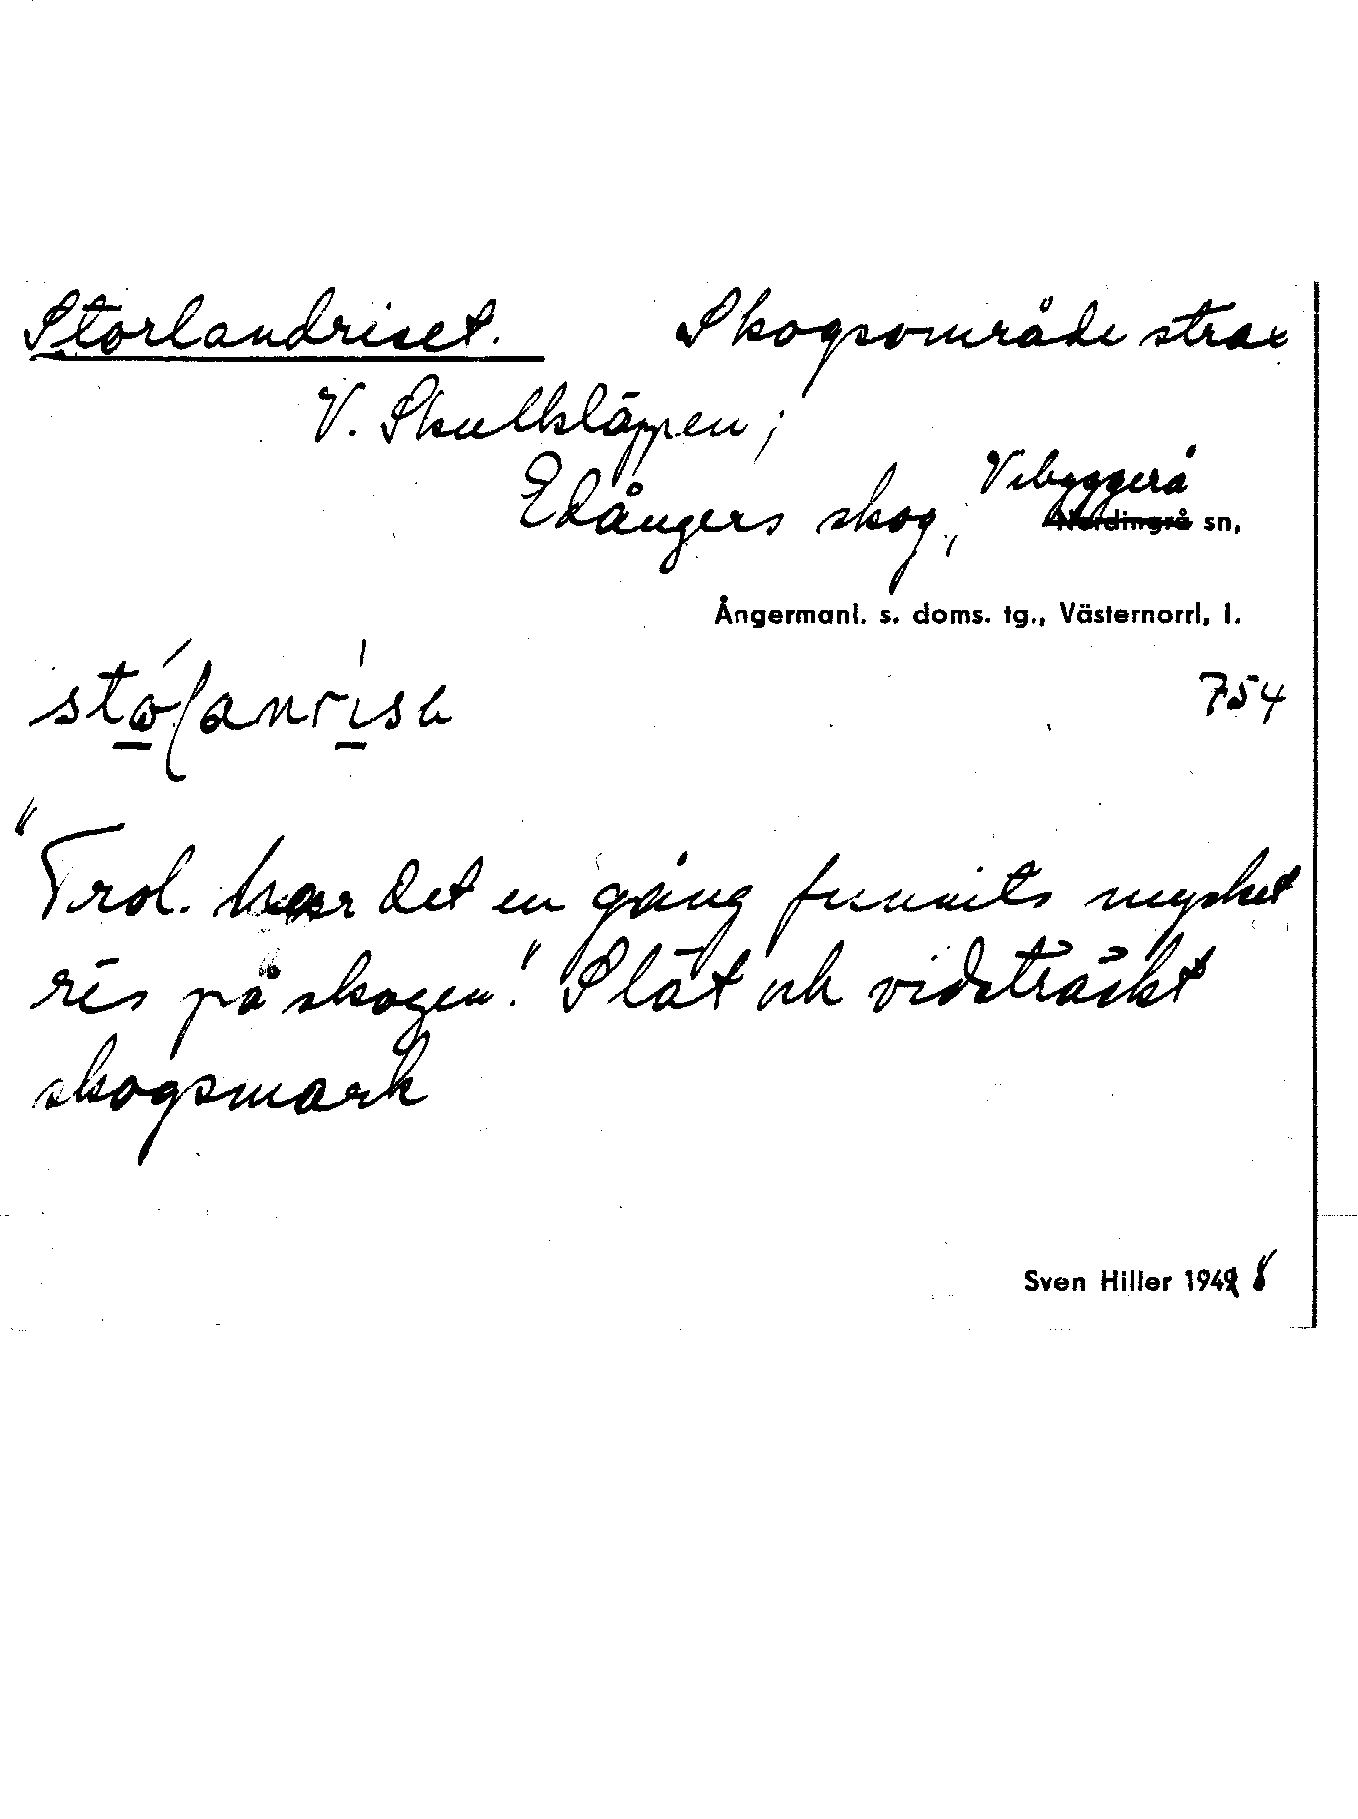 Storlandriset. Skogsområde strax
V. Skullkläppen;
Edångers skog, Vibyggerå
Nordingrå sn,
Ångermanl. s. doms. tg., Västernorrl. l.
754
"Trol. har det en gång funnits mycket
ris på skogen." Slät och vidsträckt
skogsmark
Sven Hiller 1942 8